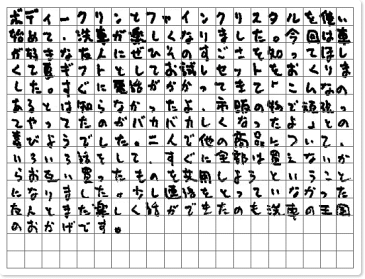 ボディークリンとファインクリスタルを使い
始めて、洗車が楽しくなりました。今回は車
が好きな友人にぜひそのすごさを知ってほし
くて夏ギフトとしてお試しセットをおくりま
した。すぐに電話がかかってきて「こんなの
あるとは知らなかったよ、市販の物で頑張っ
てやってたのがバカバカしくなったよ」との
喜びようでした。二人で他の商品について、
いろいろ話をして、すぐに全部は買えないか
らお互い買ったものを共用しようということ
になりました。少し連絡をとっていなかった
友人とまた楽しく話ができたのも洗車の王国
のおかげです。